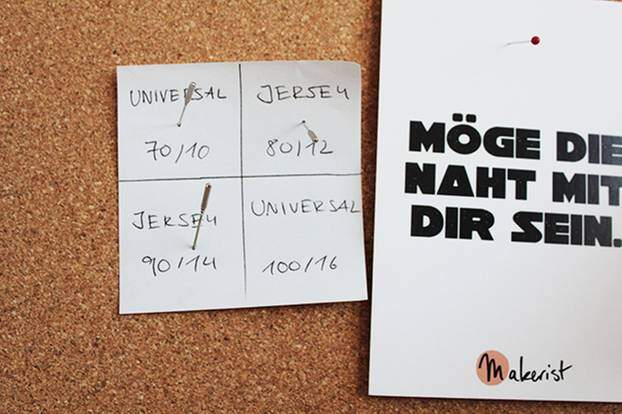 UNIVERSAL
70/10
JERSEY
80/12
JERSEY
90/14
UNIVERSAL
100/16
MÖGE DIE
NAHT MIT
DIR SEIN.
Makerist